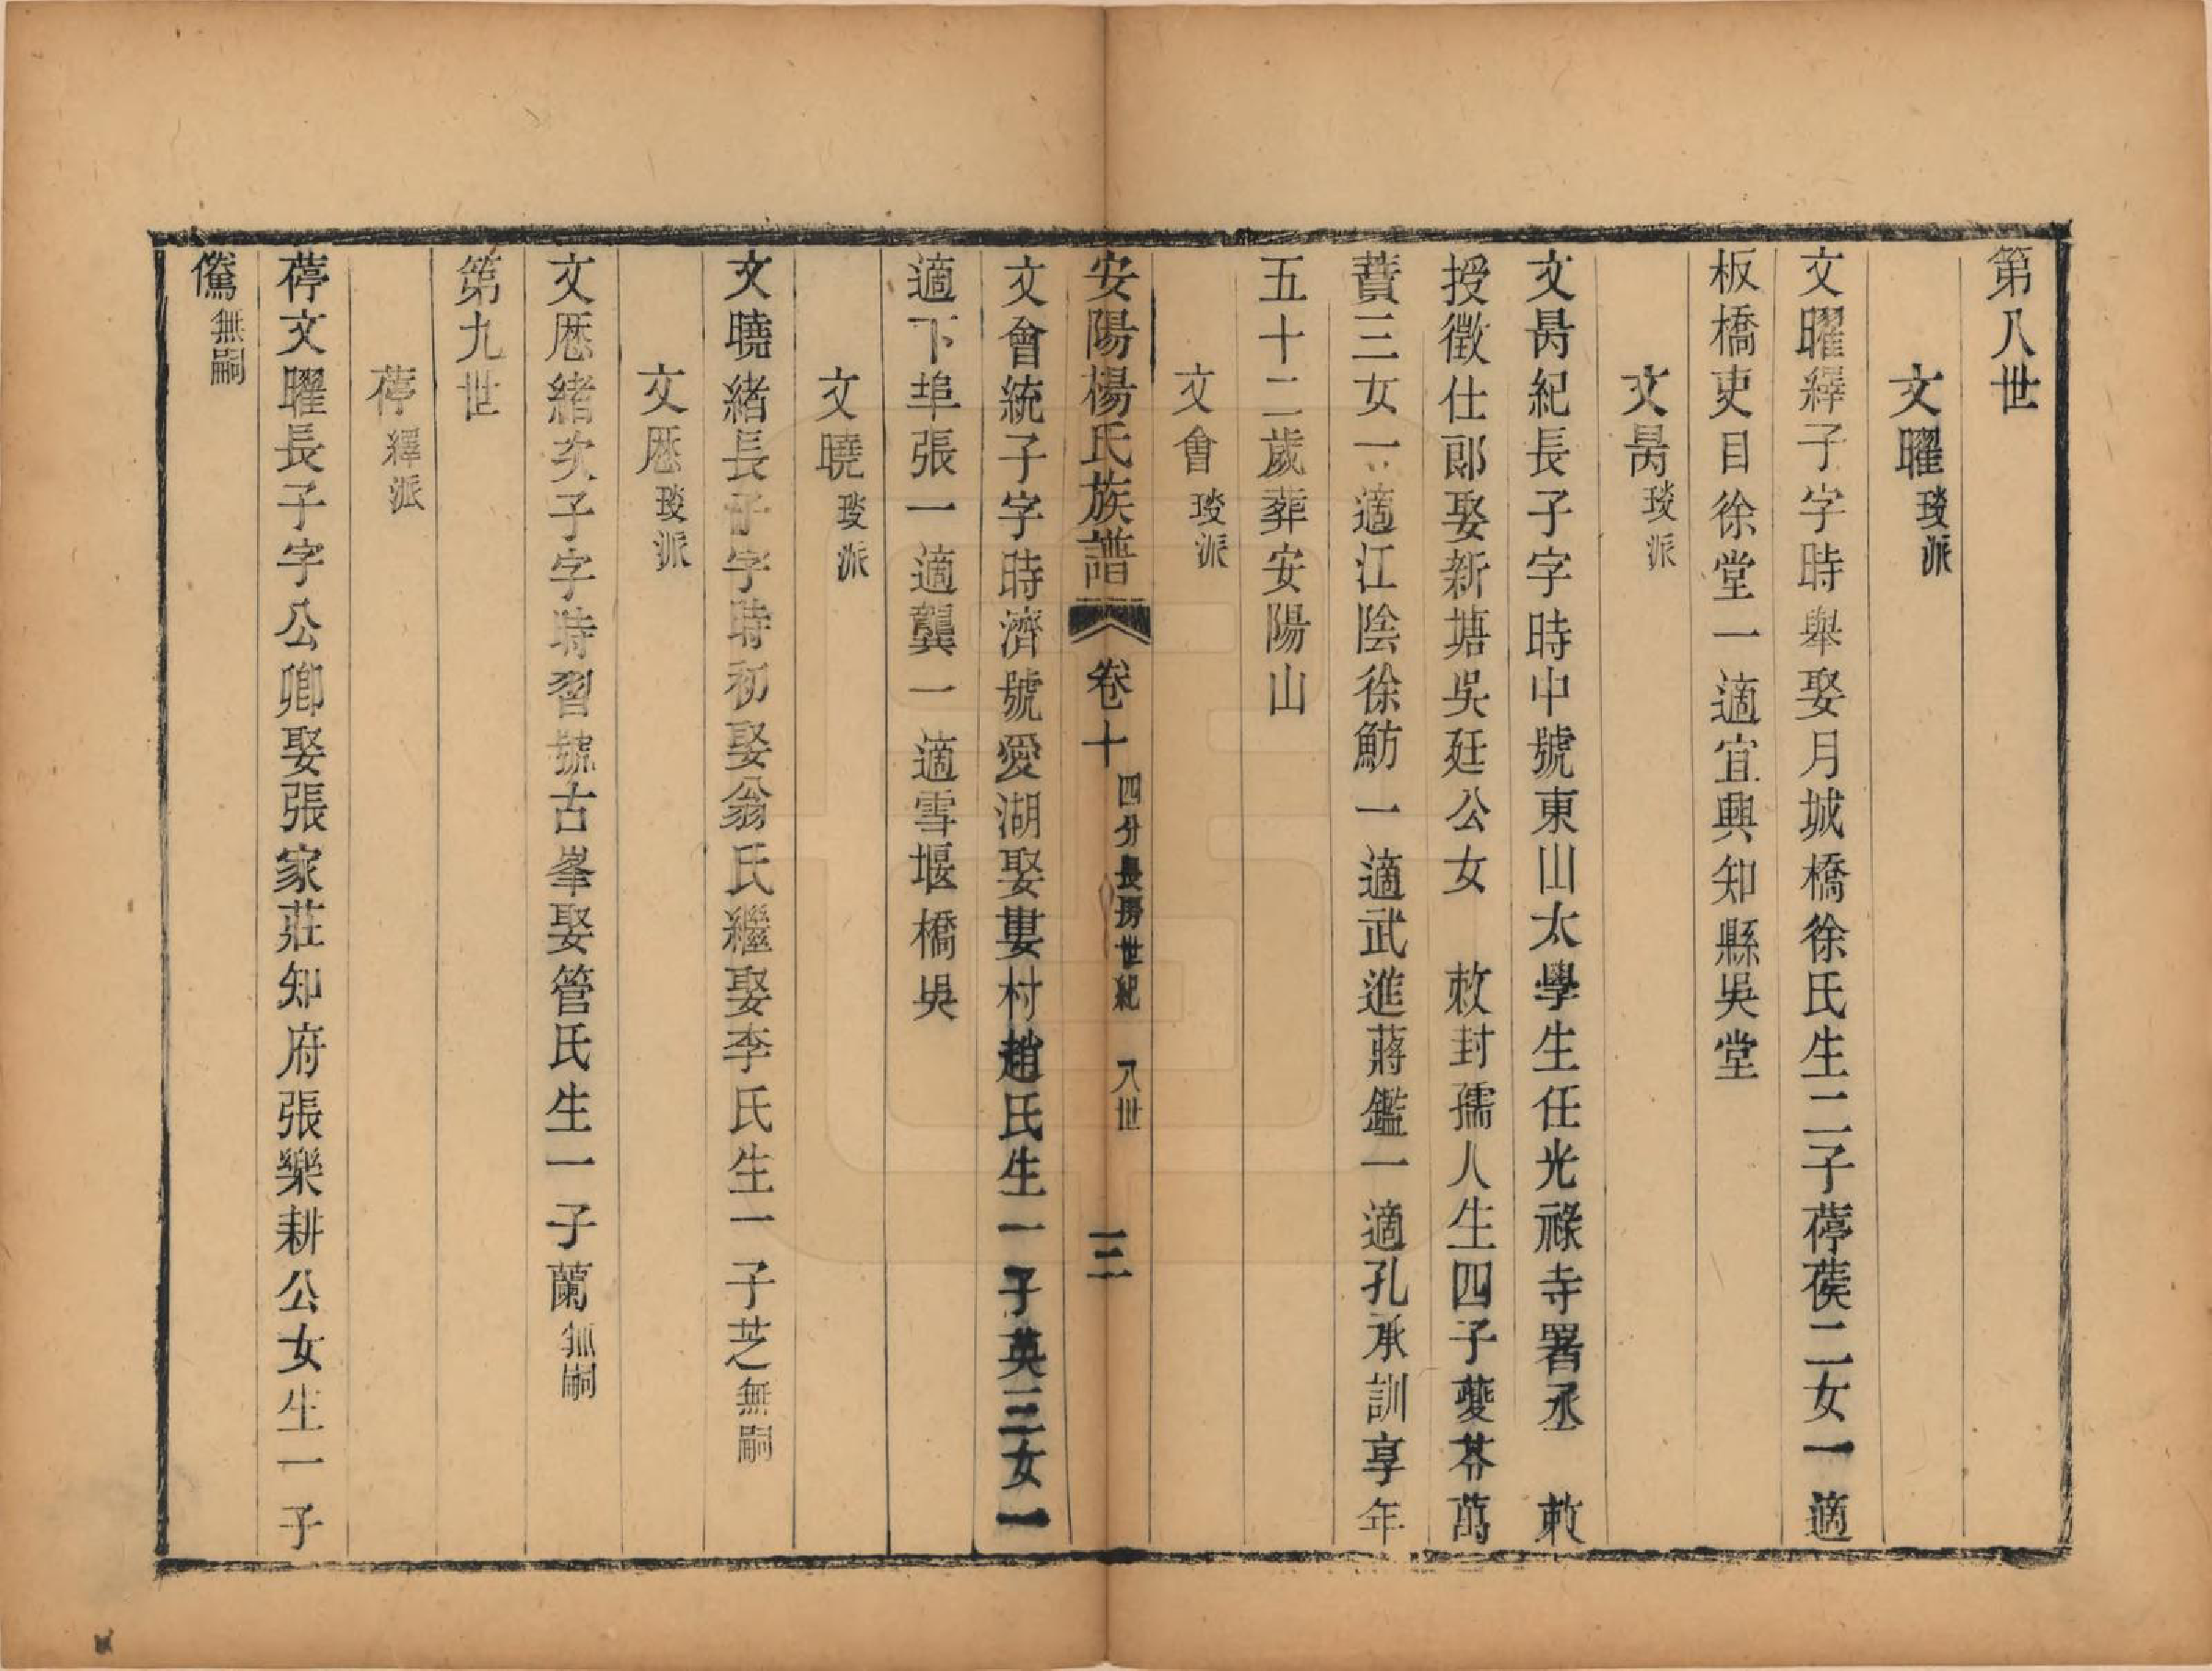 第八世
文曜 琰派
文曜繹子字時舉娶月城橋徐氏生二子葶葔二女一適
板橋吏目徐堂一適宜興知縣吳堂
文昺 琰派
文昺紀長子字時中號東山太學生任光祿寺署丞 敕
授徵仕郎娶新塘吳廷公女 敕封孺人生四子䕫苯萬
蕡三女一適江陰徐魴一適武進蔣鑑一適孔承訓享年
五十二歲葬安陽山
文會 琰派
安陽楊氏族譜 卷十 四分長房世紀 八世 三
文會統子字時濟號愛湖娶婁村趙氏生一子英三女一
適下埠張一適龔一適雪堰橋吳
文曉 琰派
文曉緒長子字時初娶翁氏繼娶李氏生一子芝無嗣
文厯 琰派
文厯緒次子字時習號古峯娶管氏生一子蘭無嗣
第九世
葶 繹派
葶文曜長子字公卿娶張家莊知府張樂耕公女生一子
儁 無嗣